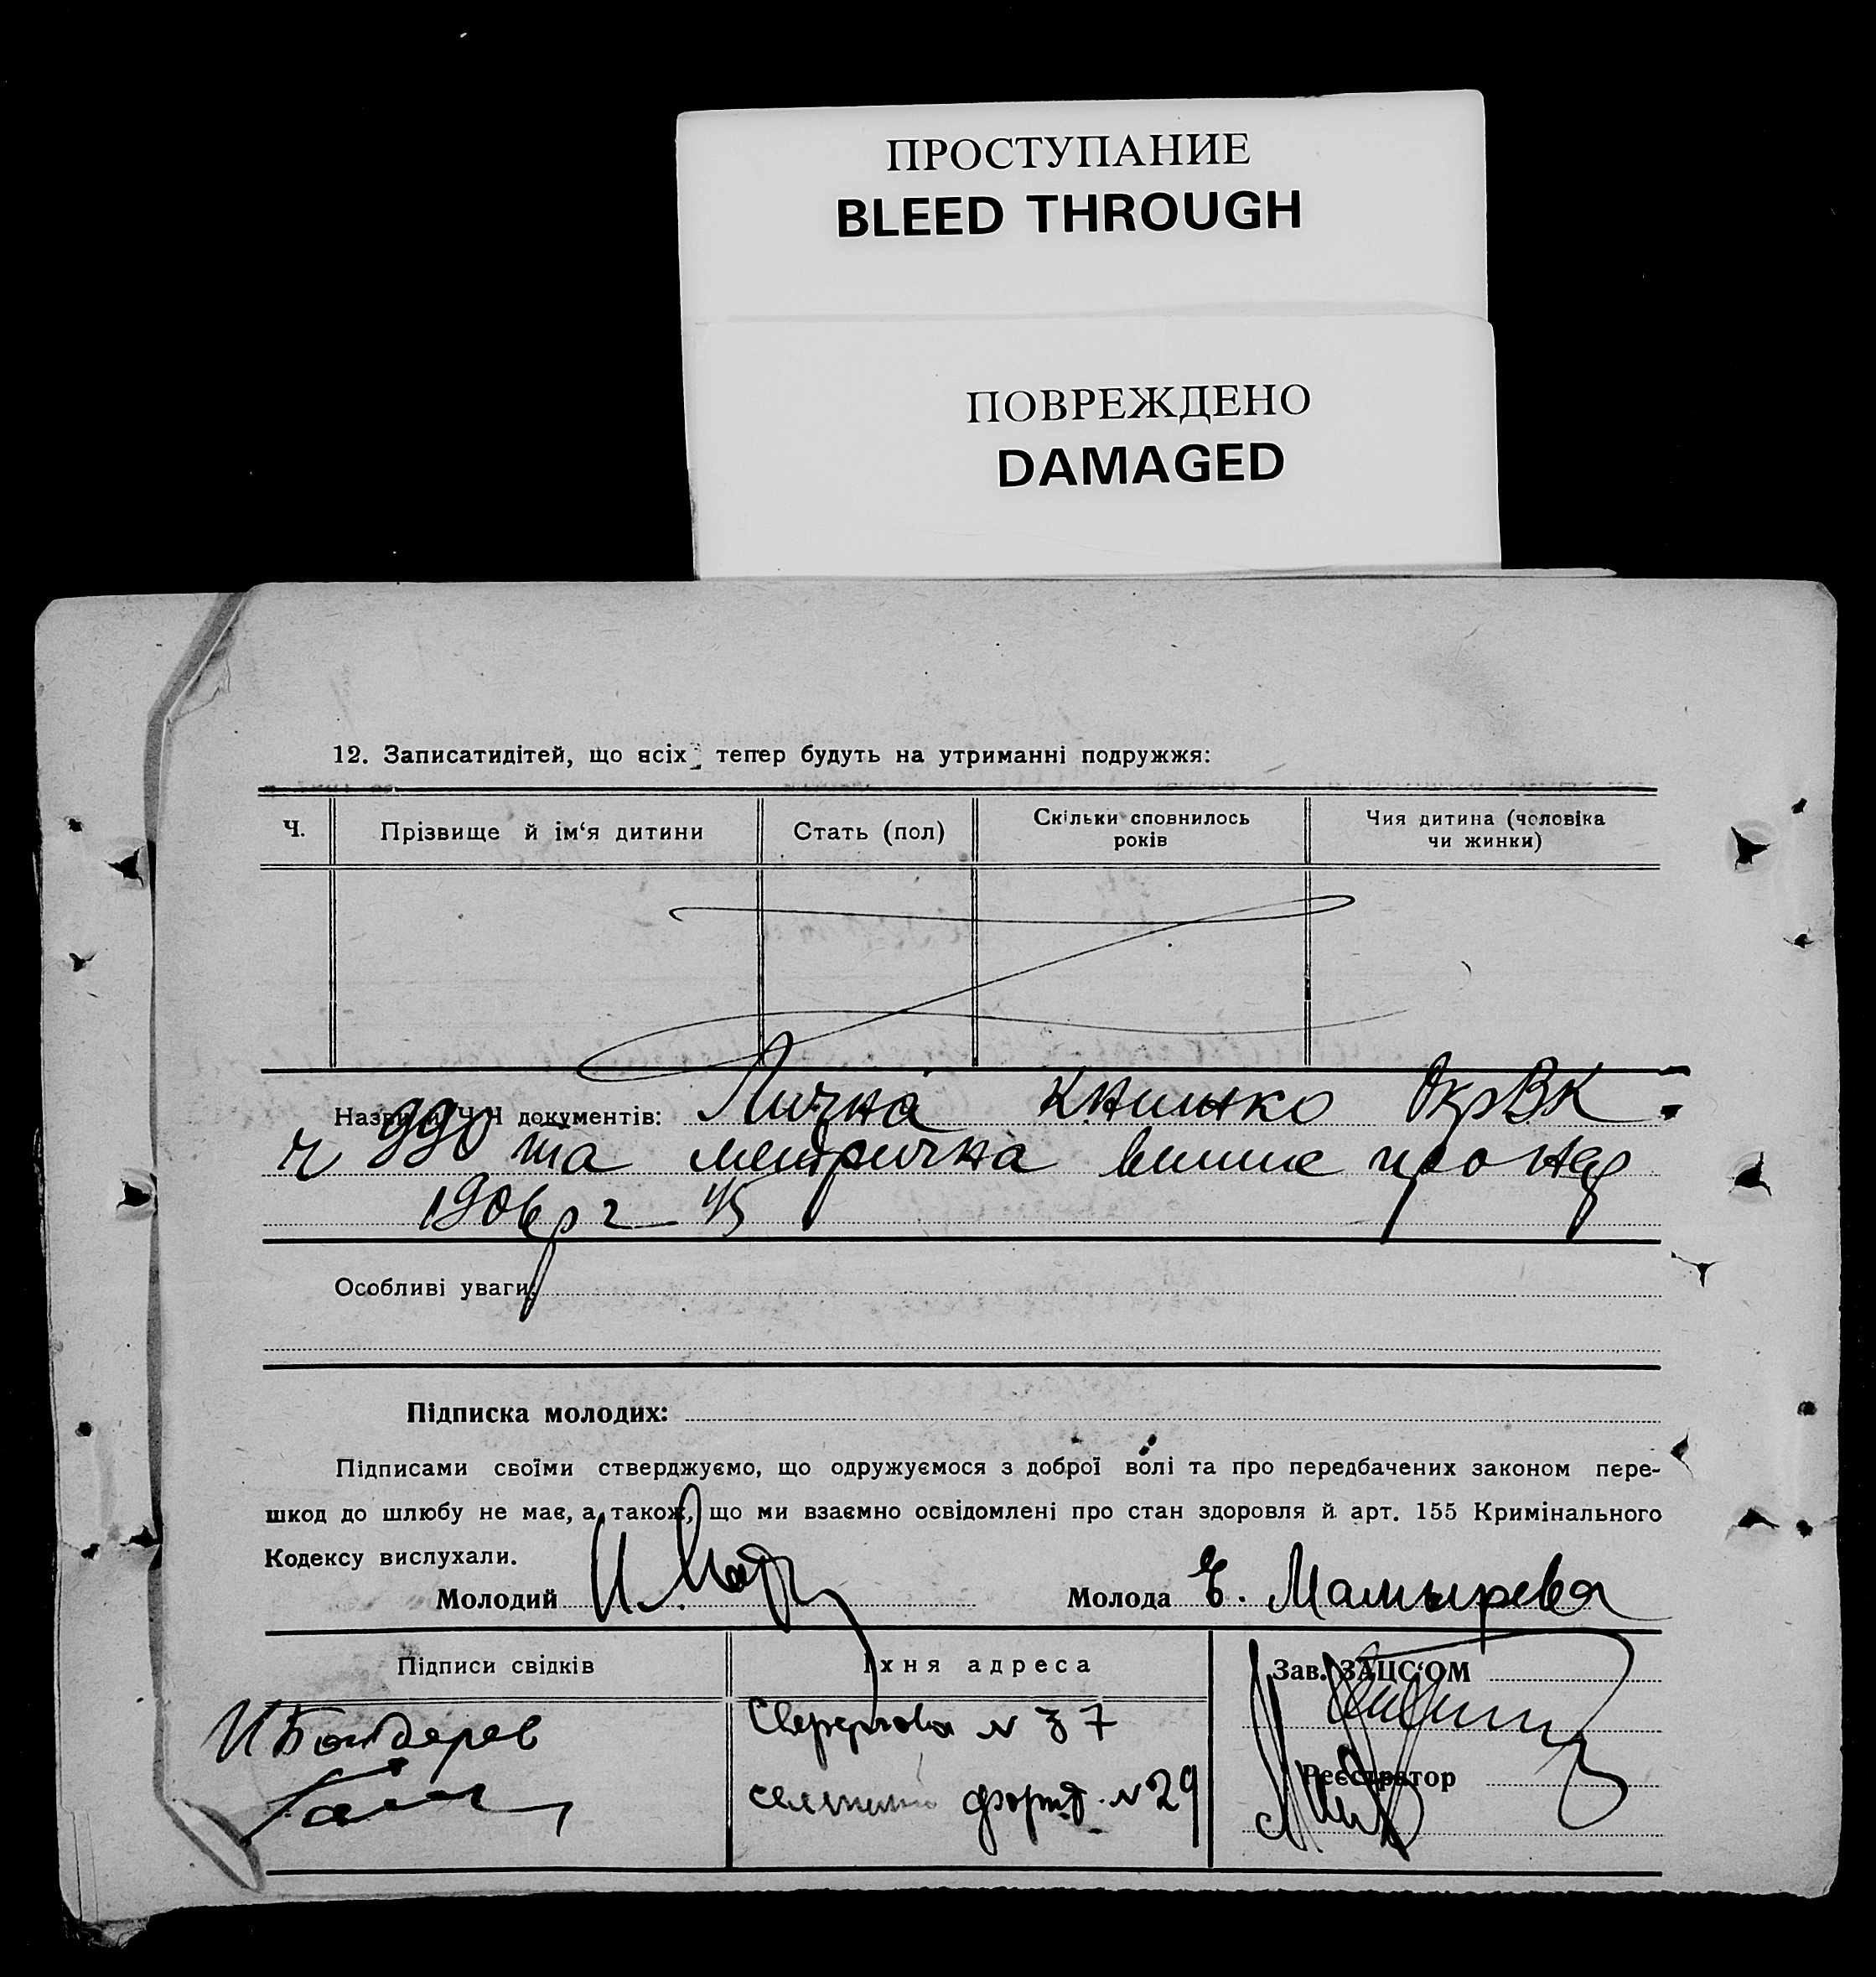 ПРОСТУПАНИЕ
BLEED THROUGH
ПОВРЕЖДЕНО
DAMAGED
12. Записатидітей, що всіх тепер будуть на утриманні подружжя:
Ч. Прізвище й ім‘я дитини Стать (пол) Скільки сповнилось років Чия дитина (чоловіка чи жинки)
Назви й Ч.Ч документів: Лична книжко ОкрВК
ч 990 та метрична
1906 р
Особливі уваги:
Підписка молодих:
Підписами своїми стверджуємо, що одружуємося з доброї волі та про передбачених законом пере-
шкод до шлюбу не має, а також, що ми взаємно освідомлені про стан здоровля й арт. 155 Кримінального
Кодексу вислухали.
Молодий Молода Е. Мамырева
Підписи свідків Їхня адреса Зав. ЗАЦС‘ОМ
И Бондарев N 37
Реєстратор
N 29